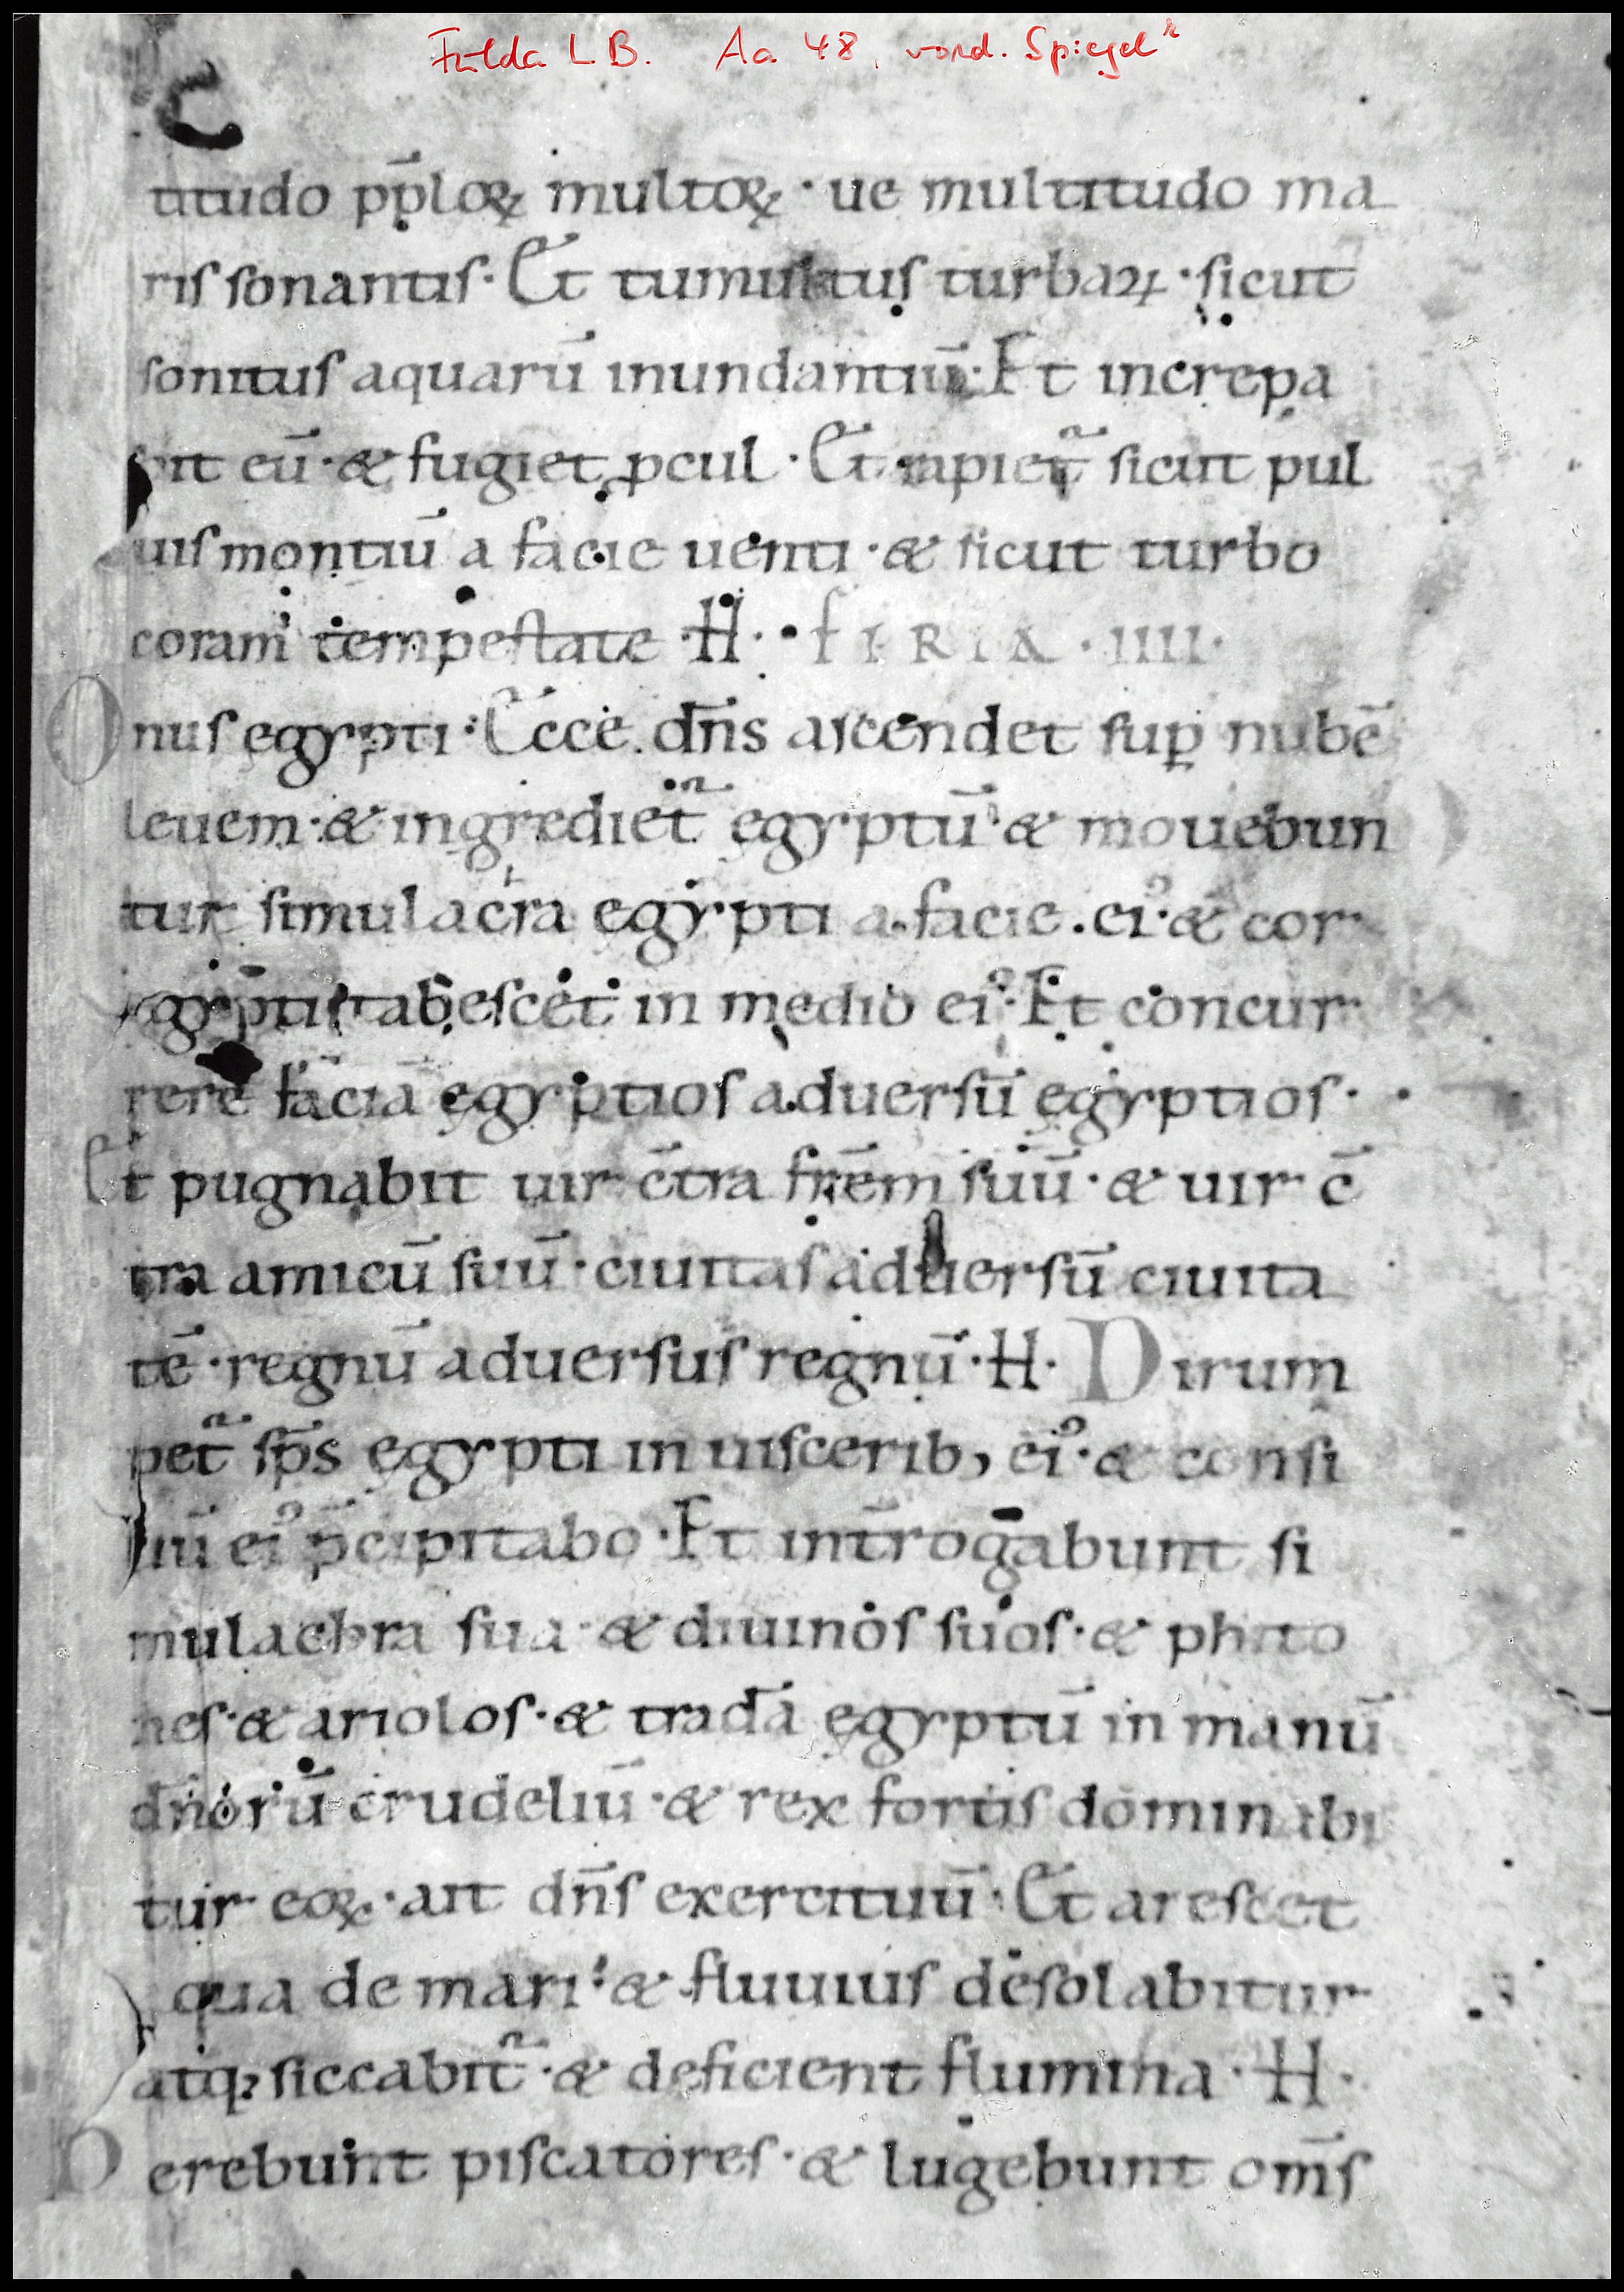 Fulda LB. Aa 48, vord. Spiegel
C
titudo pp̄loꝝ multoꝝ · ue multitudo ma
ris sonantis · Et tumultus turbaꝝ · sicut
sonitus aquarū inundantiū · Et increpa
bit eū · & fugiet ꝓcul · Et rapiet᷑ sicut pul
uis montiū a facie uenti · & sicut turbo
coram tempestate · H · FERIA · IIII ·
Onus egypti · Ecce dn̄s ascendet suꝑ nubē
leuem · & ingrediet᷑ egyptū & mouebun
tur simulacra egypti a facie eiꝰ · & cor
egypti tabescet in medio eiꝰ · Et concur
rere faciā egyptios aduersū egyptios ·
Et pugnabit uir c̄tra fr̄em suū · & uir c̄
tra amicū suū · ciuitas aduersū ciuita
tē · regnū aduersus regnū · H · Dirum
pet᷑ sp̄s egypti in uisceribꝫ eiꝰ · & consi
liū eiꝰ p̄cipitabo · Et int̄rogabunt si
mulachra sua · & diuinos suos · & phito
nes · & ariolos · & tradā egyptū in manū
dn̄orū crudeliū · & rex fortis dominabi
tur eoꝝ · ait dn̄s exercituū · Et arescet
qua de mari · & fluuius desolabitur
atqꝫ siccabit᷑ · & deficient flumina · H ·
erebunt piscatores · & lugebunt om̄s